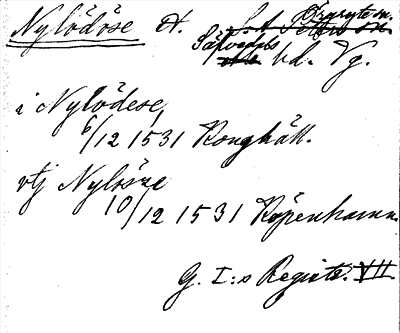 Nylödöse St.
Sävedals hd. Vg.
i Nylödese,
6/12 1531 Konghäll.
vtj Nylöse
10/12 1531 Köpenhamn.
G. I:s Registr. VII.